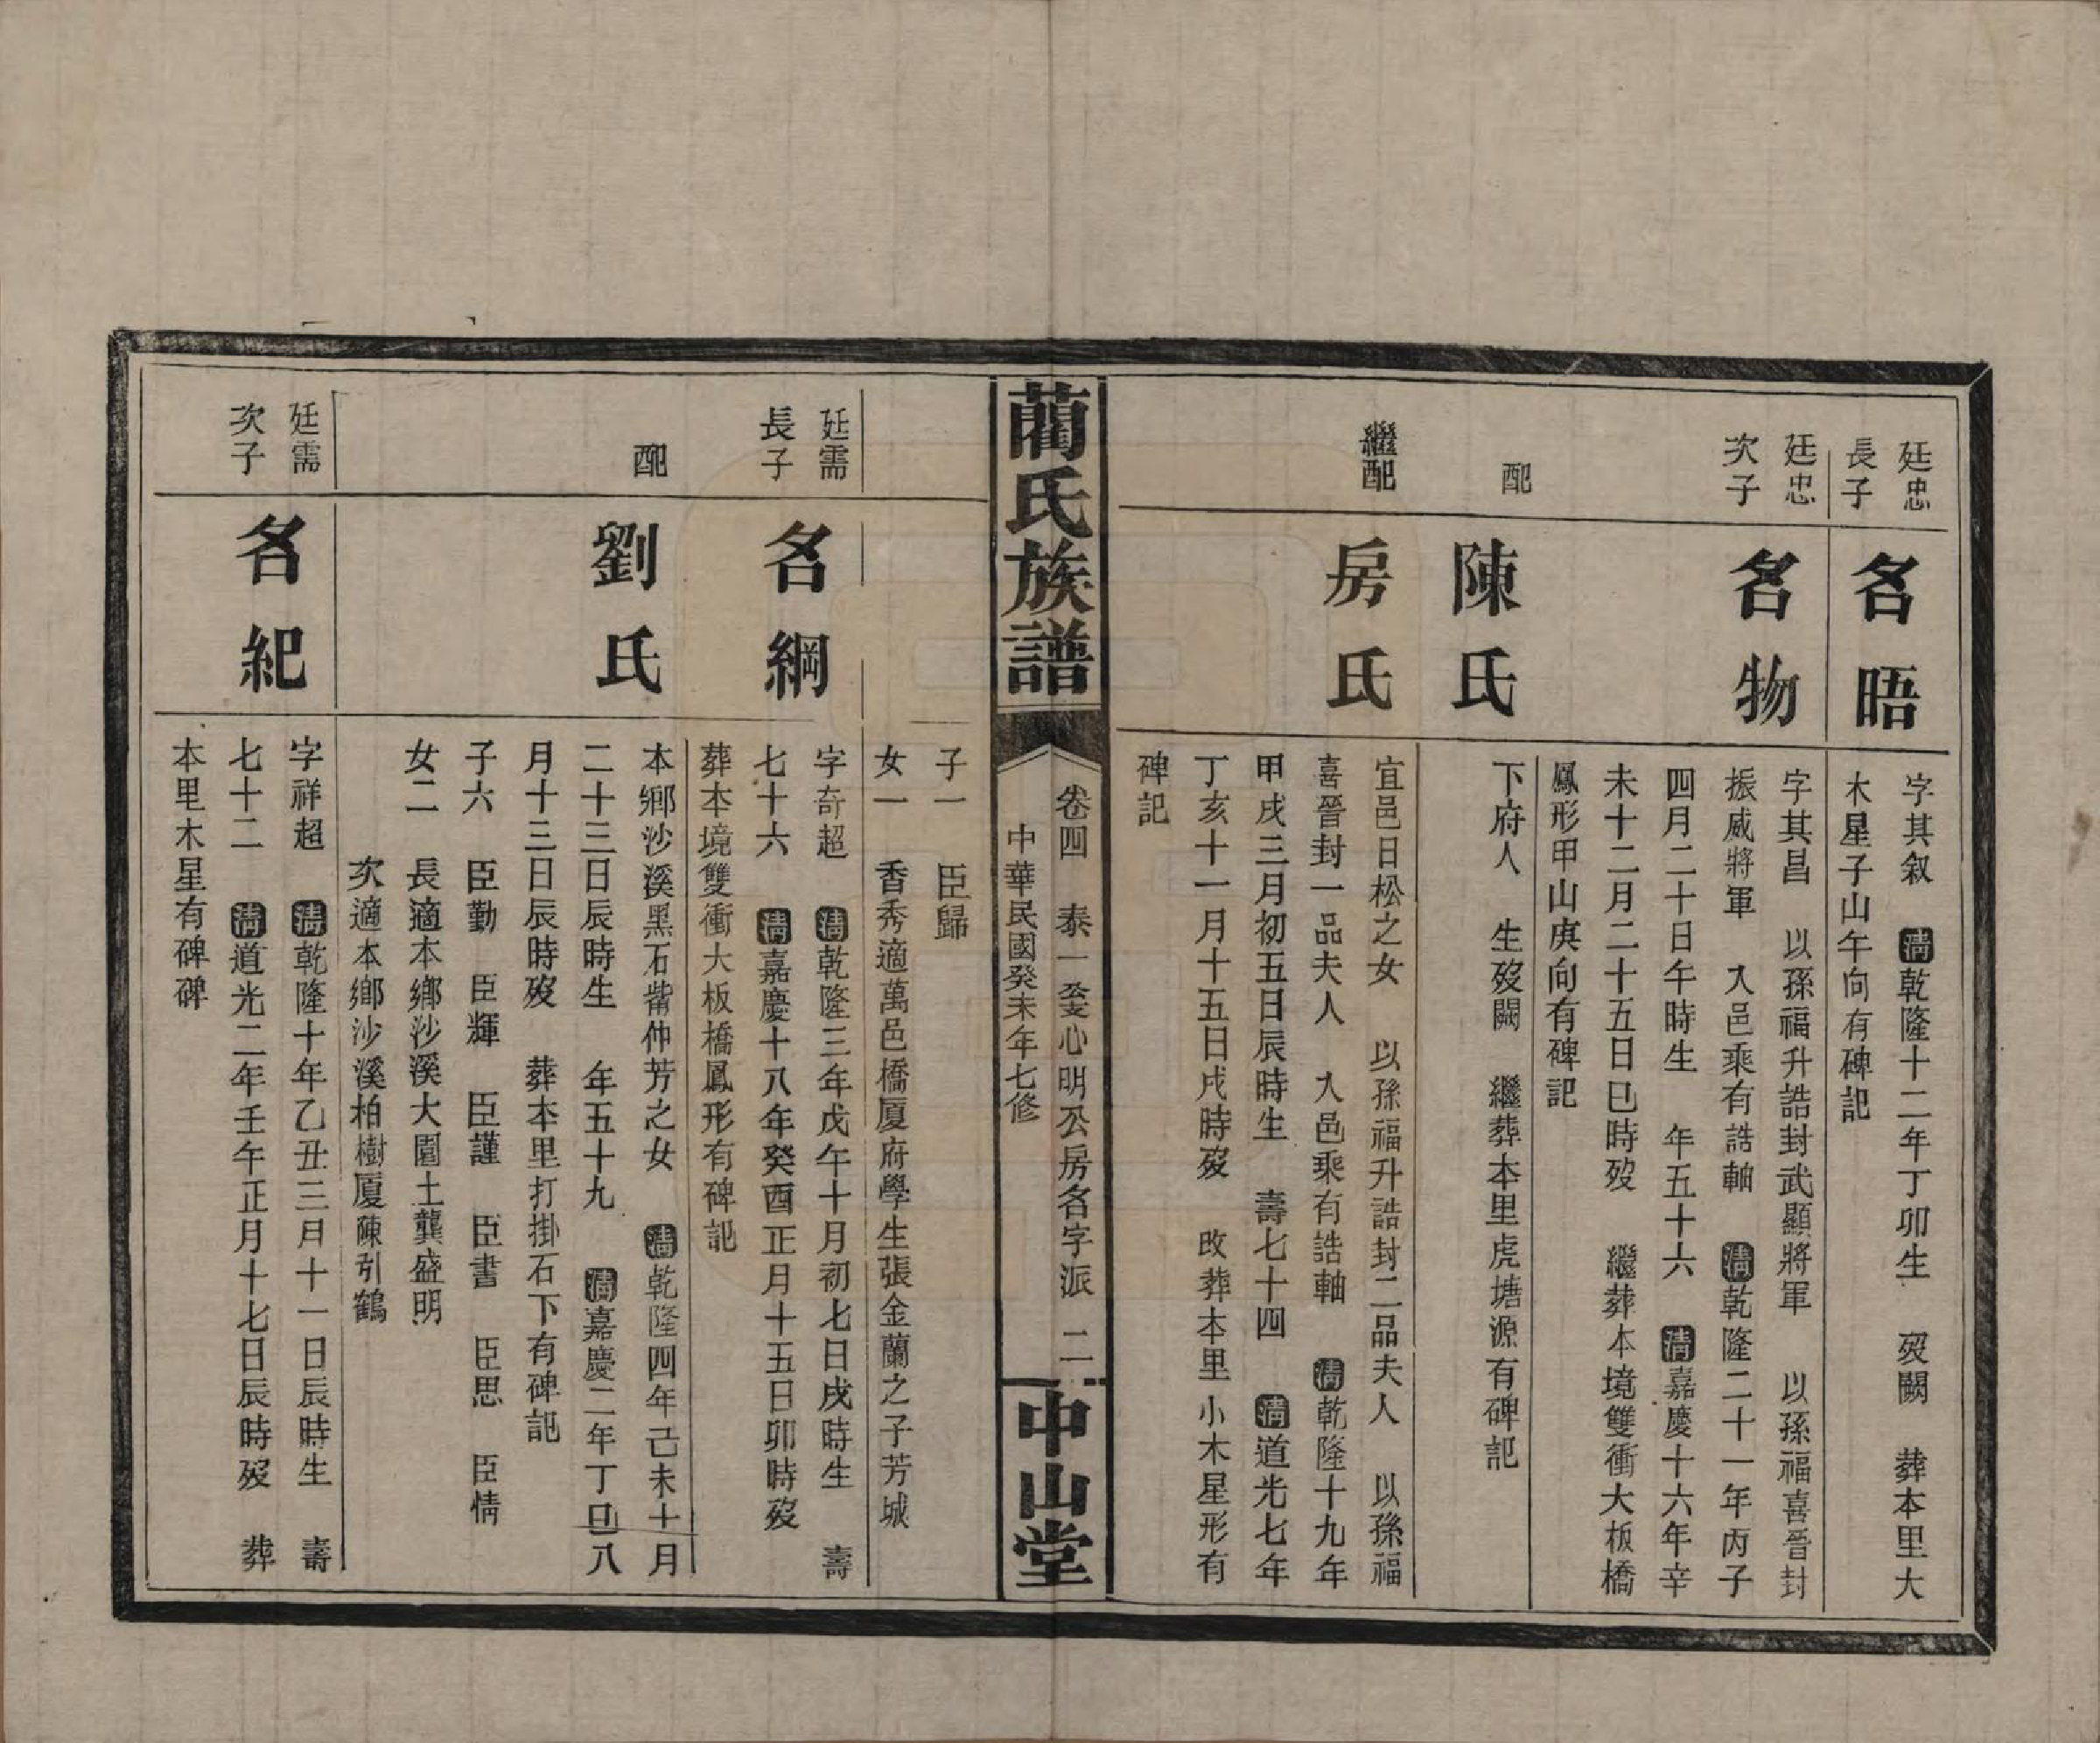 廷忠
長子
名晤
字其敘 清乾隆十二年丁卯生 歿闕 葬本里大
木星子山午向有碑記
廷忠
次子
名物
字其昌 以孫福升誥封武顯將軍 以孫福喜晉封
振威將軍 入邑乘有誥軸 清乾隆二十一年丙子
四月二十日午時生 年五十六 清嘉慶十六年辛
未十二月二十五日巳時歿 繼葬本境雙衝大板橋
鳳形甲山庚向有碑記
配
陳氏
下府人 生歿闕 繼葬本里虎塘源有碑記
繼配
房氏
宜邑日松之女 以孫福升誥封二品夫人 以孫福
喜晉封一品夫人 入邑乘有誥軸 清乾隆十九年
甲戌三月初五日辰時生 壽七十四 清道光七年
丁亥十一月十五日戌時歿 改葬本里小木星形有
碑記
藺氏族譜
卷四 泰一 心明公房名字派 二
中華民國癸未年七修
中山堂
子一 臣歸
女一 香秀適萬邑橋厦府學生張金蘭之子芳城
廷需
長子
名綱
字奇超 清乾隆三年戊午十月初七日戌時生 壽
七十六 清嘉慶十八年癸酉正月十五日卯時歿
葬本境雙衝大板橋鳳形有碑記
配
劉氏
本鄉沙溪黑石觜仲芳之女 清乾隆四年己未十月
二十三日辰時生 年五十九 清嘉慶二年丁巳八
月十三日辰時歿 葬本里打掛石下有碑記
子六 臣勤 臣輝 臣謹 臣書 臣思 臣情
女二 長適本鄉沙溪大園土龔盛明
次適本鄉沙溪柏樹厦陳引鶴
廷需
次子
名紀
字祥超 清乾隆十年乙丑三月十一日辰時生 壽
七十二 清道光二年壬午正月十七日辰時歿 葬
本里木星有碑碑